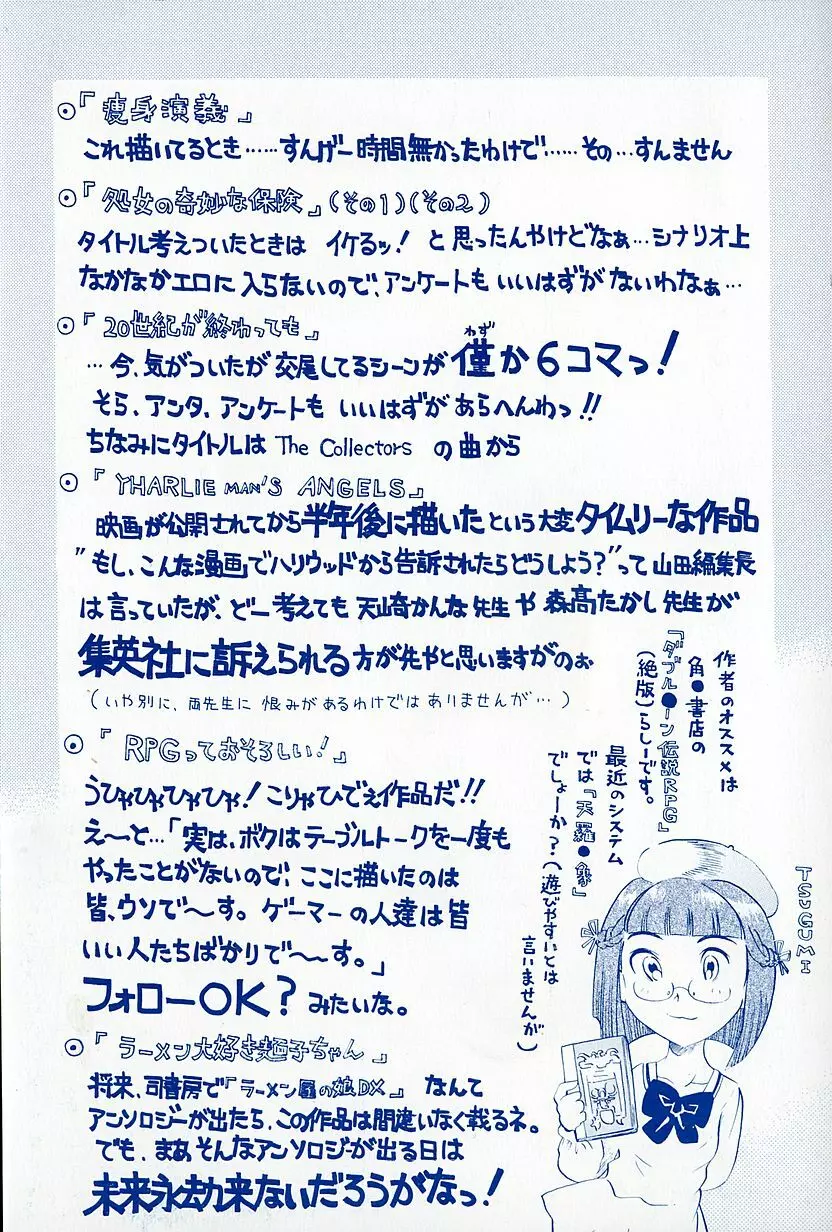 ◎『痩身演義』
これ描いてるとき……すんげー時間無かったわけで……その…すんません
◎『処女の奇妙な保険』(その1)(その2)
タイトル考えついたときは イケるッ! と思ったんやけどなぁ…シナリオ上
なかなかエロに入らないので、アンケートもいいはずがないわなぁ…
◎『20世紀が終わっても』
…今、気がついたが交尾してるシーンが僅か6コマっ!
わず
そら、アンタ、アンケートもいいはずがあらへんわっ!!
ちなみにタイトルは The Collectors の曲から
◎『YHARLIE MAN'S ANGELS』
映画が公開されてから半年後に描いたという大変タイムリーな作品
"もし、こんな漫画でハリウッドから告訴されたらどうしよう?"って山田編集長
は言っていたが、どー考えても天崎かんな先生や森髙たかし先生が
集英社に訴えられる方が先やと思いますがのぉ
(いや別に、両先生に恨みがあるわけではありませんが…)
◎『RPGっておそろしい!』
うひゃひゃひゃひゃ!こりゃひでぇ作品だ!!
え〜と…「実は、ボクはテーブルトークを一度も
やったことがないので、ここに描いたのは
皆、ウソで〜す。ゲーマーの人達は皆
いい人たちばかりで〜〜す。」
フォローOK?みたいな。
作者のオススメは
角●書店の
『ダブル●ーン伝説RPG』
(絶版)らしーです。
最近のシステム
では『天羅●象』
でしょーか?(遊びやすいとは
言いませんが)
TSUGUMI
◎『ラーメン大好き麺子ちゃん』
将来、司書房で『ラーメン屋の娘DX』なんて
アンソロジーが出たら、この作品は間違いなく載るネ。
でも、まぁそんなアンソロジーが出る日は
未来永劫来ないだろうがなっ!